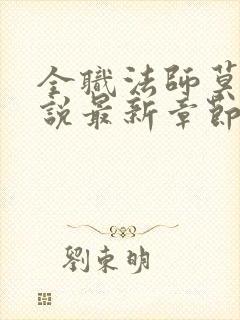 全職法師莫
說最新章節
劉東明